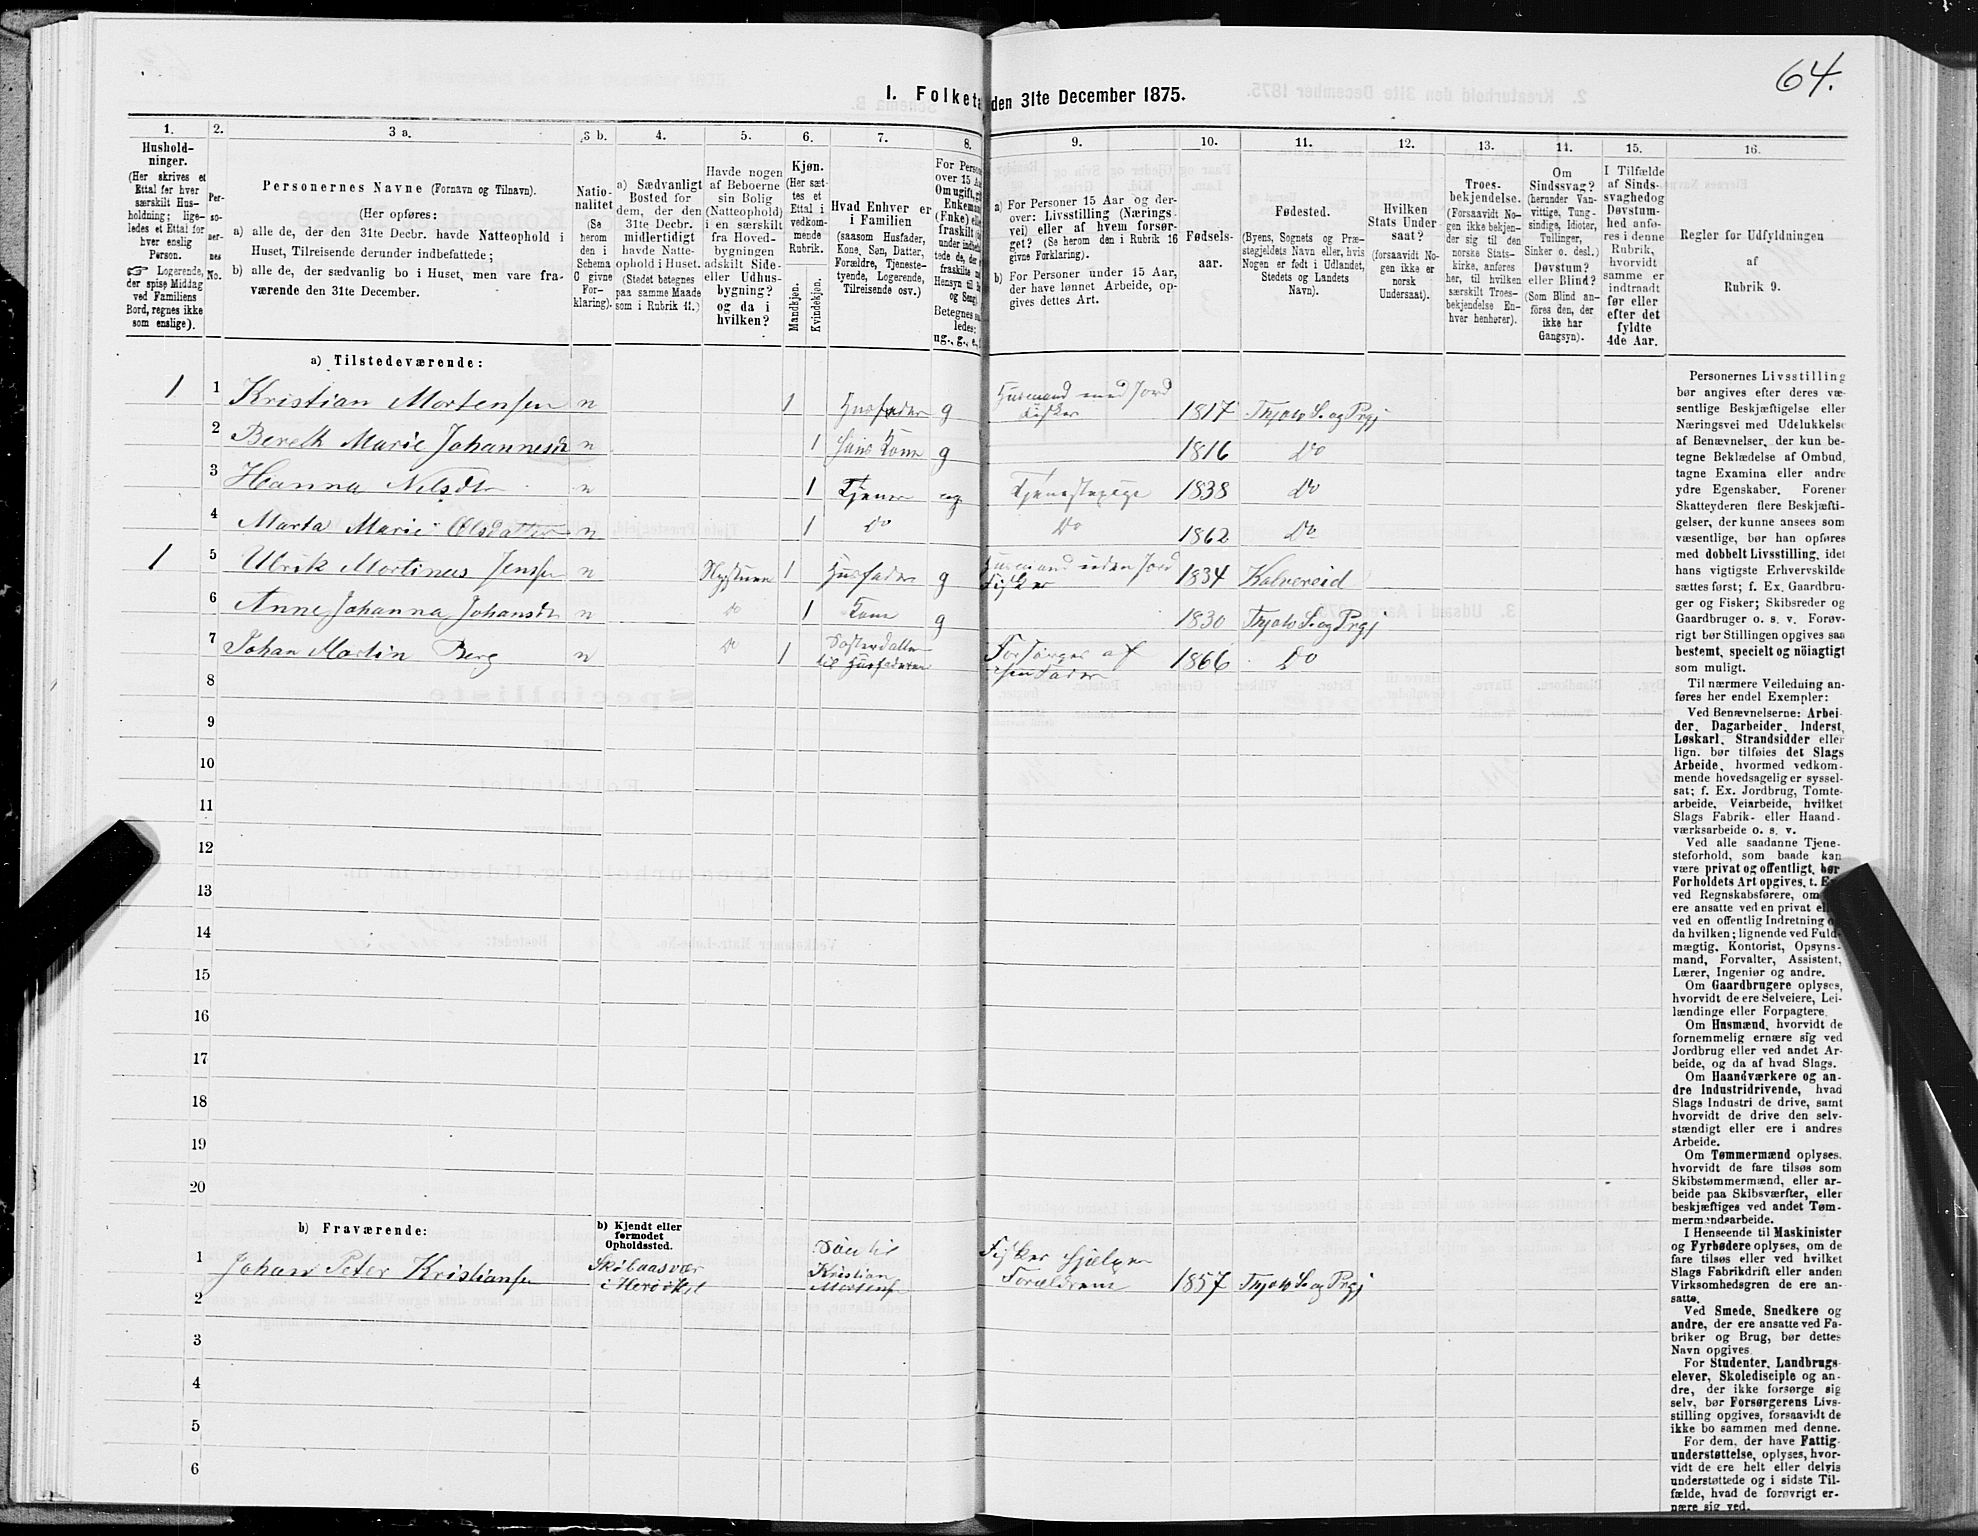 64.
I. Folketa
den 31te December 1875.
1. 2. 3 a. 3 b. 4. 5. 6. 7. 8. 9. 10. 11. 12. 13. 14. 15. 16.
Hushold-
ninger.
(Her skrives et
Ettal for hver
særskilt Hus-
holdning; lige-
ledes et Ettal for
hver enslig
Person.
☞ Logerende,
der spise Middag
ved Familiens
Bord, regnes ikke
som enslige).
Per-
so-
ner-
nes
No.
Personernes Navne (Fornavn og Tilnavn).
(Her opføres:
a) alle de, der den 31te Decbr. havde Natteophold i
Huset, Tilreisende derunder indbefattede;
b) alle de, der sædvanlig bo i Huset, men vare fra-
værende den 31te December.
Natio-
nalitet
(Se
herom
den i
Schema
O givne
For-
klaring).
a) Sædvanligt
Bosted for
dem, der den
31te Decbr.
midlertidigt
havde Natte-
ophold i Huset.
(Stedet betegnes
paa samme Maade
som i Rubrik 11.)
Havde nogen
af Beboerne
sin Bolig
(Natteophold)
i en særskilt
fra Hoved-
bygningen
adskilt Side-
eller Udhus-
bygning?
og da i
hvilken?
Kjøn.
(Her sæt-
tes et
Ettal i
vedkom-
mende
Rubrik.
Mandkjøn.
Kvindekjøn.
Hvad Enhver er
i Familien
(saasom Husfader,
Kone, Søn, Datter,
Forældre, Tjeneste-
tyende, Logerende,
Tilreisende osv.)
For Perso
over 15 Aa
Om ugift, gi
Enkeman
(Enke) elle
fraskilt
under indbe
tede de, der
fraskilte
Hensyn til
og Seng
Betegnes
ledes:
ug., g., e.,
a) For Personer 15 Aar og der-
over: Livsstilling (Nærings-
vei) eller af hvem forsør-
get? (Se herom den i Rubrik 16
givne Forklaring).
b) For Personer under 15 Aar,
der have lønnet Arbeide, op-
gives dettes Art.
Fødsels-
aar.
Fødested.
(Byens, Sognets og Præ-
stegjeldets Navn eller, hvis
Nogen er født i Udlandet,
Stedets og Landets
Navn).
Hvilken
Stats Under
saat?
(forsaavidt No-
gen ikke er
norsk
Undersaat).
Troes-
bekjendelse.
(Forsaavidt No-
gen ikke bekjen-
der sig til den
norske Stats-
kirke, anføres
her, til hvilken
særskilt Troes-
bekjendelse En-
hver henhører).
Om
Sindssvag?
(herunder Van-
vittige, Tung-
sindige, Idioter,
Tullinger,
Sinker o. desl.)
Døvstum?
eller Blind?
(Som Blind an-
føres den, der
ikke har
Gangsyn).
I Tilfælde
af Sinds-
svaghed og
Døvstum-
hed anfø-
res i denne
Rubrik,
hvorvidt
samme er
indtraadt
før eller
efter det
fyldte
4de Aar.
Regler for Udfyldningen
af
Rubrik 9.
a) Tilstedeværende:
1 1 Kristian Mortensen n 1 Husfader g Husmand med Jord Fisker 1817 Thjøtø S. og Prgj
2 Marie Johannesdt n 1 Hans Kone g 1816 Do
3 Hanna Nilsdtr n 1 Tjener ug Tjenestepige 1838 Do
4 Marta Marie Olsdatter n 1 Do Do 1862 Do
1 5 Ulrik Martinus Jensen n 1 Husfader g Husmand uden Jord Fisker 1834
6 Anne Johanna Johansdt n Do 1 Kone g 1830 Thjøtø S. og Prgj
7 Johan Martin Berg n Do 1 til Husfaderen Forsørges af sin Fader 1866 Do
8
9
10
11
12
13
14
15
16
17
18
19
20
b) Fraværende:
b) Kjendt eller
formodet
Opholdssted.
1 Johan Peter Kristiansen i Herø Søn til Kristian Mortensen Fisker hjelper Forældrene 1857 Thjøtø S. og Prgj
2
3
4
5
6
Personernes Livsstilling
bør angives efter deres væ-
sentlige Beskjæftigelse eller
Næringsvei med Udelukkelse
af Benævnelser, der kun be-
tegne Beklædelse af Ombud,
tagne Examina eller andre
ydre Egenskaber. Forener
Skatteyderen flere Beskjæfti-
gelser, der kunne ansees som
væsentlige, bør han opføres
med dobbelt Livsstilling, idet
hans vigtigste Erhvervskilde
sættes først; f. Ex. Gaardbru-
ger og Fisker; Skibsreder og
Gaardbruger o. s. v. Forøv-
rigt bør Stillingen opgives saa
bestemt, specielt og nöiagtigt
som muligt.
Til nærmere Veiledning an-
føres her endel Exempler:
Ved Benævnelserne: Arbei-
der, Dagarbeider, Inderst,
Løskarl, Strandsidder eller
lign. bør tilføies det Slags
Arbeide, hvormed vedkom-
mende hovedsagelig er syssel-
sat; f. Ex. Jordbrug, Tomte-
arbeide, Veiarbeide, hvilket
Slags Fabrik- eller Haand-
værksarbeide o. s. v.
Ved alle saadanne Tjene-
steforhold, som baade kan
være privat og offentligt, bør
Forholdets Art opgives, t. Ex.
ved Regnskabsførere, om
ere ansatte ved en privat
ved en offentlig Indretning
da hvilken; lignende ved Fuld-
mægtig, Kontorist, Opsyns-
mand, Forvalter, Assistent,
Lærer, Ingeniør og andre.
Om Gaardbrugere oplyses,
hvorvidt de ere Selveiere, Lei-
lændinge eller Forpagtere.
Om Husmænd, hvorvidt de
fornemmelig ernære sig ved
Jordbrug eller ved andet Ar-
beide, og da af hvad Slags.
Om Haandværkere og an-
dre Industridrivende, hvad
Slags Industri de drive, samt
hvorvidt de drive den selv-
stændigt eller ere i andres
Arbeide.
Om Tømmermænd oplyses,
hvorvidt de fare tilsøs som
Skibstømmermænd, eller ar-
beide paa Skibsværfter, eller
beskjæftiges ved andet Tøm-
mermandsarbeide.
I Henseende til Maskinister
og Fyrbødere oplyses, om de
fare tilsøs eller ved hvilket
Slags Fabrikdrift eller anden
Virksomhedsgren de ere an-
satte.
Ved Smede, Snedkere og
andre, der ere ansatte ved Fa-
briker og Brug, bør dettes
Navn opgives.
For Studenter, Landbrugs-
elever, Skoledisciple og an-
dre, der ikke forsørge sig
selv, bør Forsørgerens Livs-
stilling opgives, forsaavidt de
ikke bo sammen med denne.
For dem, der have Fattig-
understøttelse, oplyses, hvor-
vidt de ere helt eller delvis
understøttede og i sidste Til-
fælde, hvad de forøvrigt er-
nære sig ved.